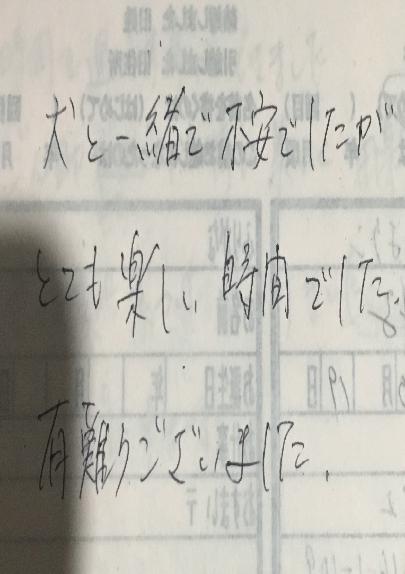 犬と一緒で不安でしたが
とても楽しい時間でした.
有難うございました.